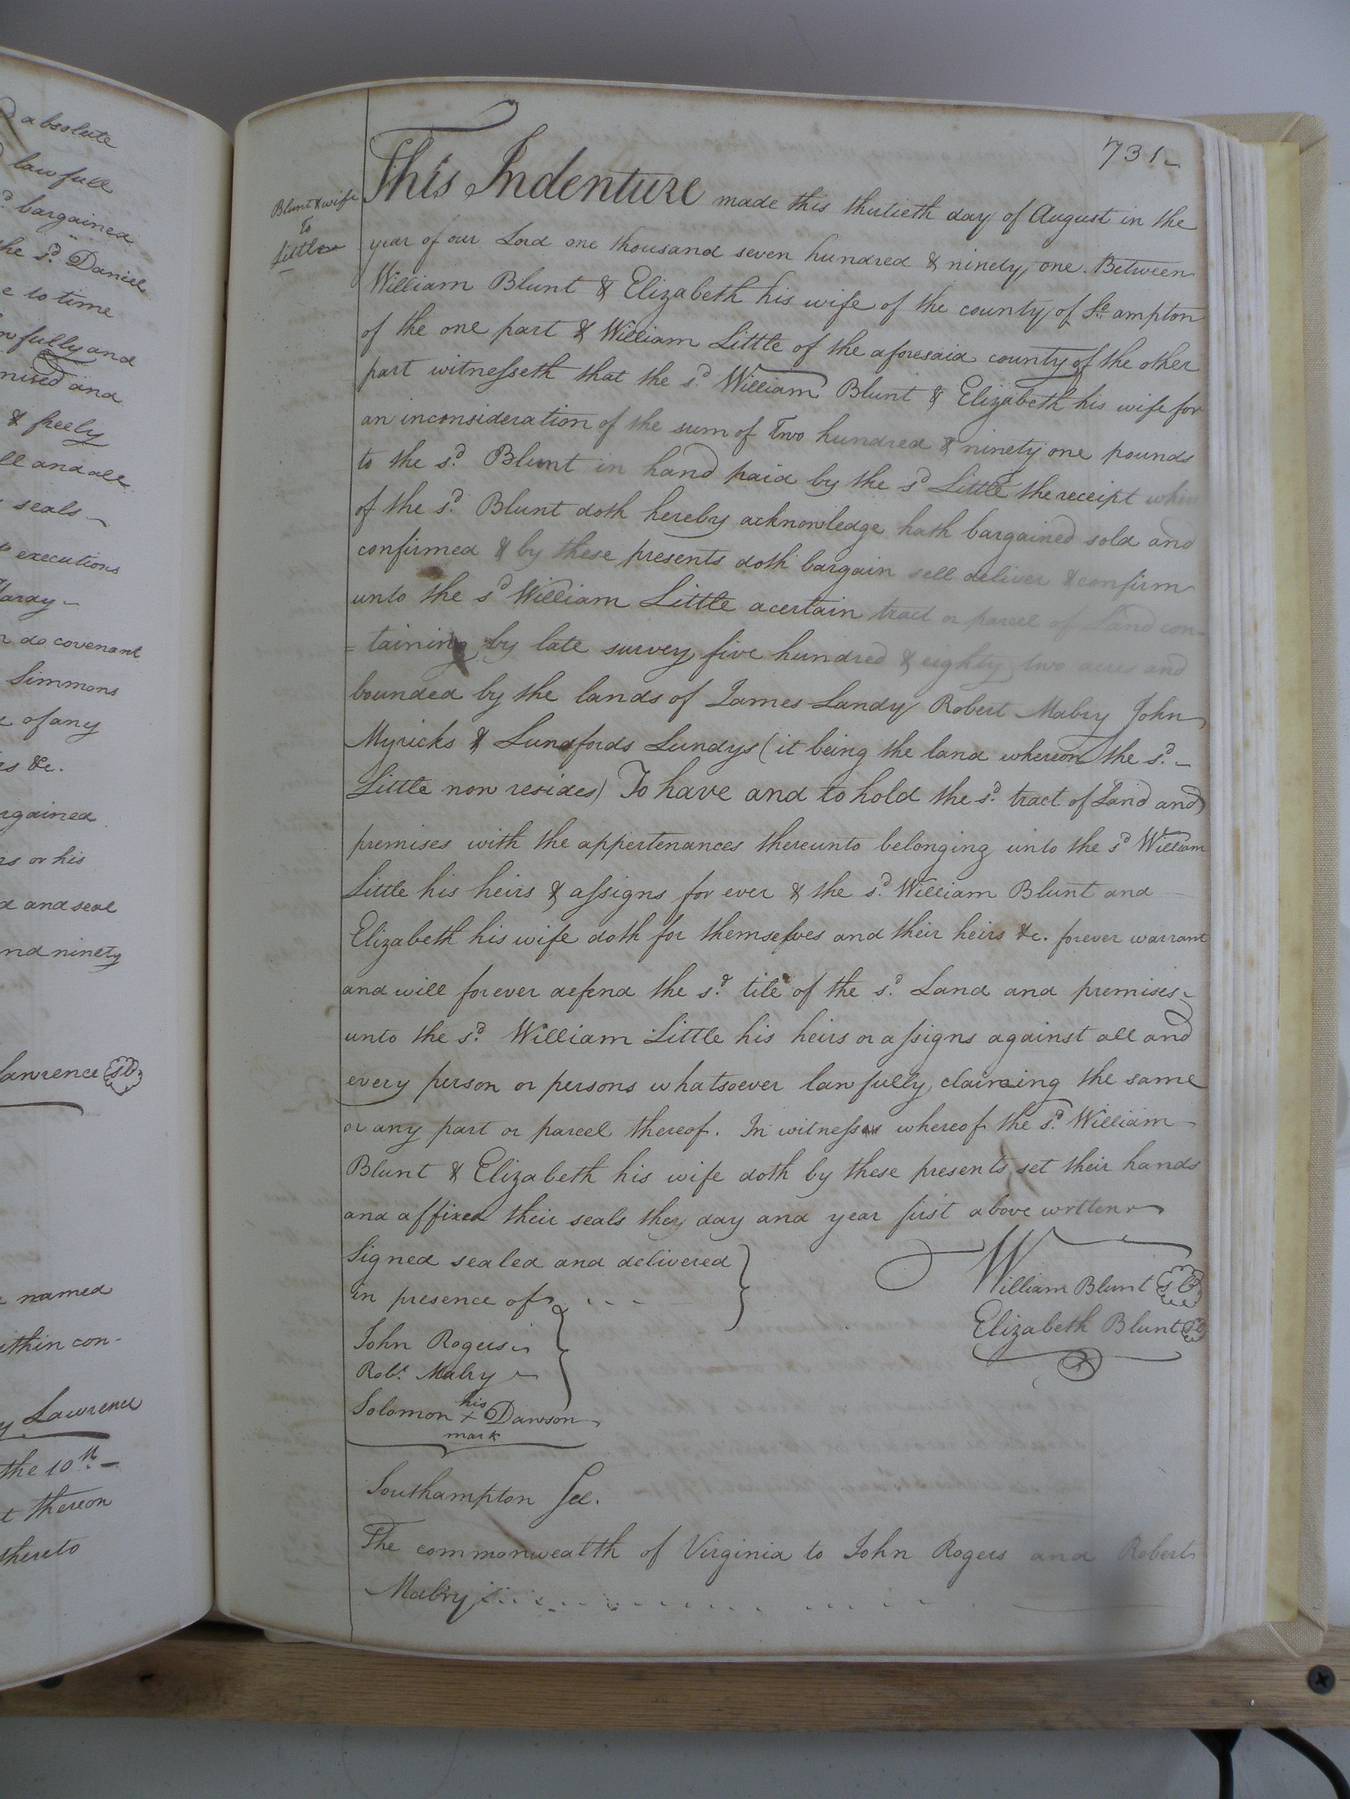 absolute
lawfull
bargained
the sd. Daniel
e to time
wfully and
mised and
& freely
ll and all
seals
executions
Hardy
do covenant
Simmons
of any
rs &c.
rgained
rs or his
d and seal
nd ninety
Lawrence
named
within con-
Lawrence
the 10th
t thereon
thereto
731
Blunt & wife
To
Little
This Indenture made this thirtieth day of August in the
year of our Lord one thousand seven hundred & ninety one. Between
William Blunt & Elizabeth his wife of the county of So.ampton
of the one part & William Little of the aforesaid county of the other
part witnesseth that the sd. William Blunt & Elizabeth his wife for
an inconsideration of the sum of Two hundred & ninety one pounds
to the sd. Blunt in hand paid by the sd Little the receipt where
of the sd. Blunt doth hereby acknowledge hath bargained sold and
confirmed & by these presents doth bargain sell deliver & confirm
unto the sd William Little a certain tract or parcel of Land con-
=taining by late survey five hundred & eighty two acres and
bounded by the lands of James Landy Robert Mabry John
Myricks & Lundfords Lundys (it being the land whereon the sd.
Little now resides) To have and to hold the sd. tract of Land and
premises with the appertenances thereunto belonging unto the sd William
Little his heirs & assigns for ever & the sd. William Blunt and
Elizabeth his wife doth for themselves and their heirs &c. forever warrant
and will forever defend the sd. title of the sd. Land and premises
unto the sd. William Little his heirs or assigns against all and
every person or persons whatsoever lawfully claiming the same
or any part or parcel thereof. In witness whereof the sd. William
Blunt & Elizabeth his wife doth by these presents set their hands
and affixed their seals the day and year first above written
Signed sealed and delivered
in presence of
William Blunt
Elizabeth Blunt
John Rogers
Robt. Mabry
Solomon his x mark Dawson
Southampton Sct.
The commonwealth of Virginia to John Rogers and Robert
Mabry